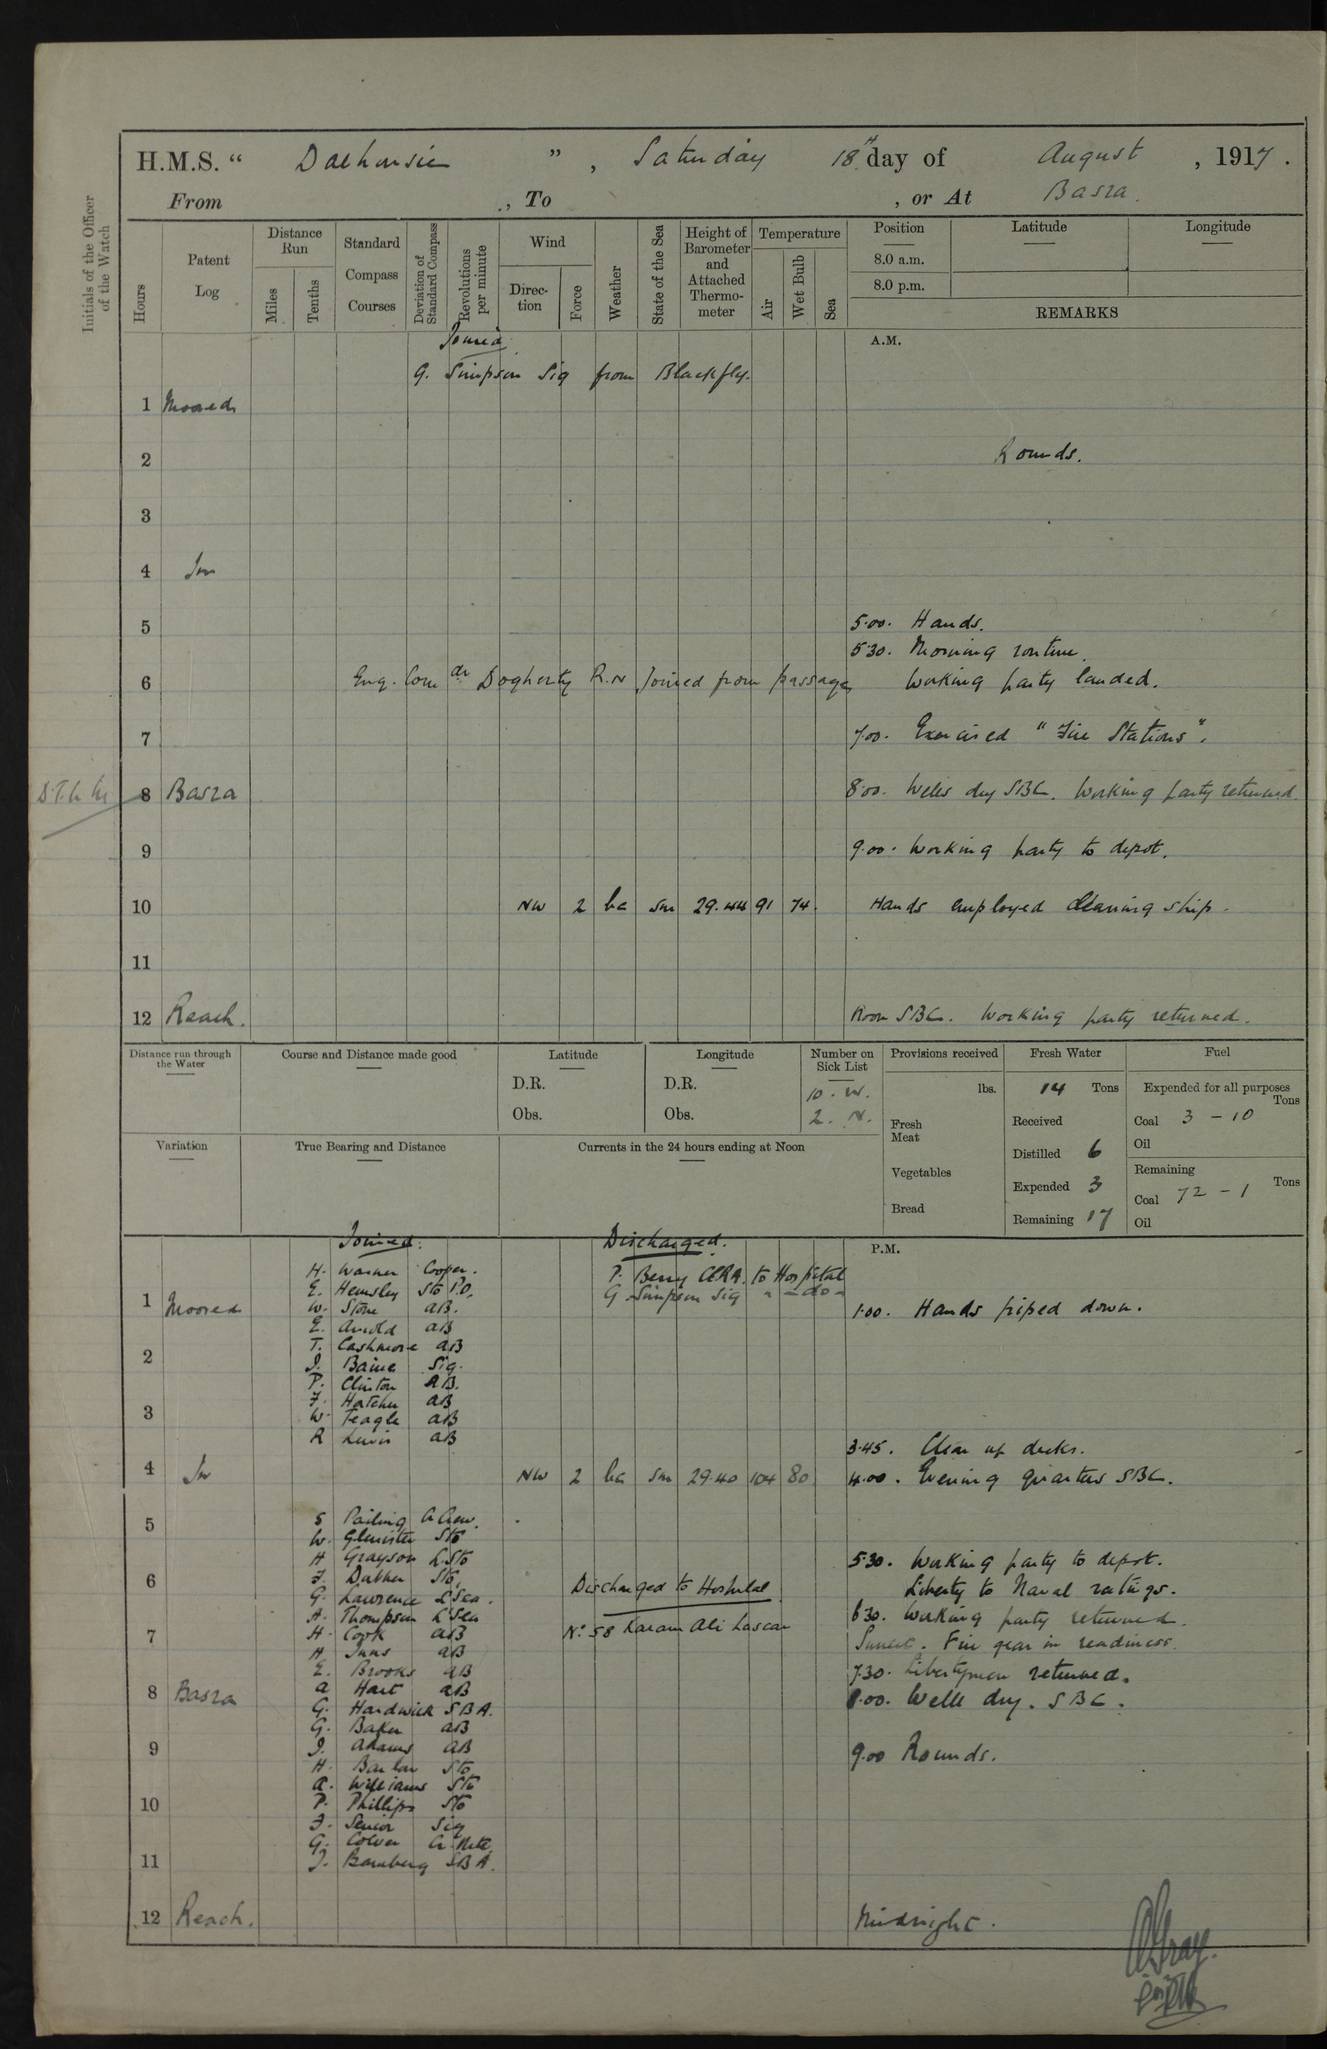 H.M.S. “ Dalhousie ” , Saturday 18th day of August , 1917 .
From , To , or At Basra.
Initials of the Officer
of the Watch
Hours
Patent
Log
Distance
Run
Miles
Tenths
Standard
Compass
Courses
Deviation of
Standard Compass
Revolutions
per minute
Wind
Direc-
tion
Force
Weather
State of the Sea
Height of
Barometer
and
Attached
Thermo-
meter
Temperature
Air
Wet Bulb
Sea
Position
8.0 a.m.
8.0 p.m.
Latitude
Longitude
REMARKS
Joined
A.M.
G. Simpson Sig from Blackfly.
1 Moored
2 Rounds.
3
4 In
5 5.00. Hands.
5.30. Morning routine
6 Eng. Comdr Dogherty R.N Joined from passage Working party landed.
7 7.00. Exercised "Fire Stations".
8 Basra 8.00. Wells dry SBC. Working party returned.
9 9.00. Working party to depot.
10 NW 2 bc sm 29.44 91 74. Hands employed cleaning ship.
11
12 Reach. Noon SBC. Working party returned.
Distance run through
the Water
Course and Distance made good
Latitude
D.R.
Obs.
Longitude
D.R.
Obs.
Number on
Sick List
10. W.
2. N.
Provisions received
lbs.
Fresh
Meat
Vegetables
Bread
Fresh Water
14 Tons
Received
Distilled 6
Expended 3
Remaining 17
Fuel
Expended for all purposes
Tons
Coal 3 - 10
Oil
Remaining
Tons
Coal 72 - 1
Oil
Variation
True Bearing and Distance
Currents in the 24 hours ending at Noon
Joined. Discharged. P.M.
H. Warner Cooper. P. Berry ERA. to Hospital
E. Hemsley Sto P.O. G Simpson Sig " - do -
1 Moored W. Stone AB. 1.00. Hands piped down.
E. Arnold AB
T. Cashmore AB
2 J. Baine Sig.
P. Clinton AB.
F. Hatcher AB
3 W. Teagle AB
R Lewis AB 3.45. Clear up decks.
4 In NW 2 bc sm 29.40 104 80 4.00. Evening quarters SBC.
5 S Pailing
W. Glenister Sto
H Grayson L.Sto 5.30. Working party to depot.
6 Sto. Discharged to Hospital Liberty to Naval ratings.
G. Lawrence L'Sea.
A. Thompson L'Sea 6.30. Working party returned.
7 H. Cook AB No. 58 Karam Ali Lascar Sunset. Fire gear in readiness.
H Inns AB
E. Brooks AB 7.30. Libertymen returned.
8 Basra A Hart AB 8.00. Wells dry. SBC.
G. Hardwick SBA.
G. Baker AB
9 J. Adams AB 9.00 Rounds.
H. Barlow Sto
A. Williams Sto
10 P. Phillips Sto
F. Senior Sig
G. Colver
11 J. Bamberg SBA.
12 Reach. Midnight.
AGray.